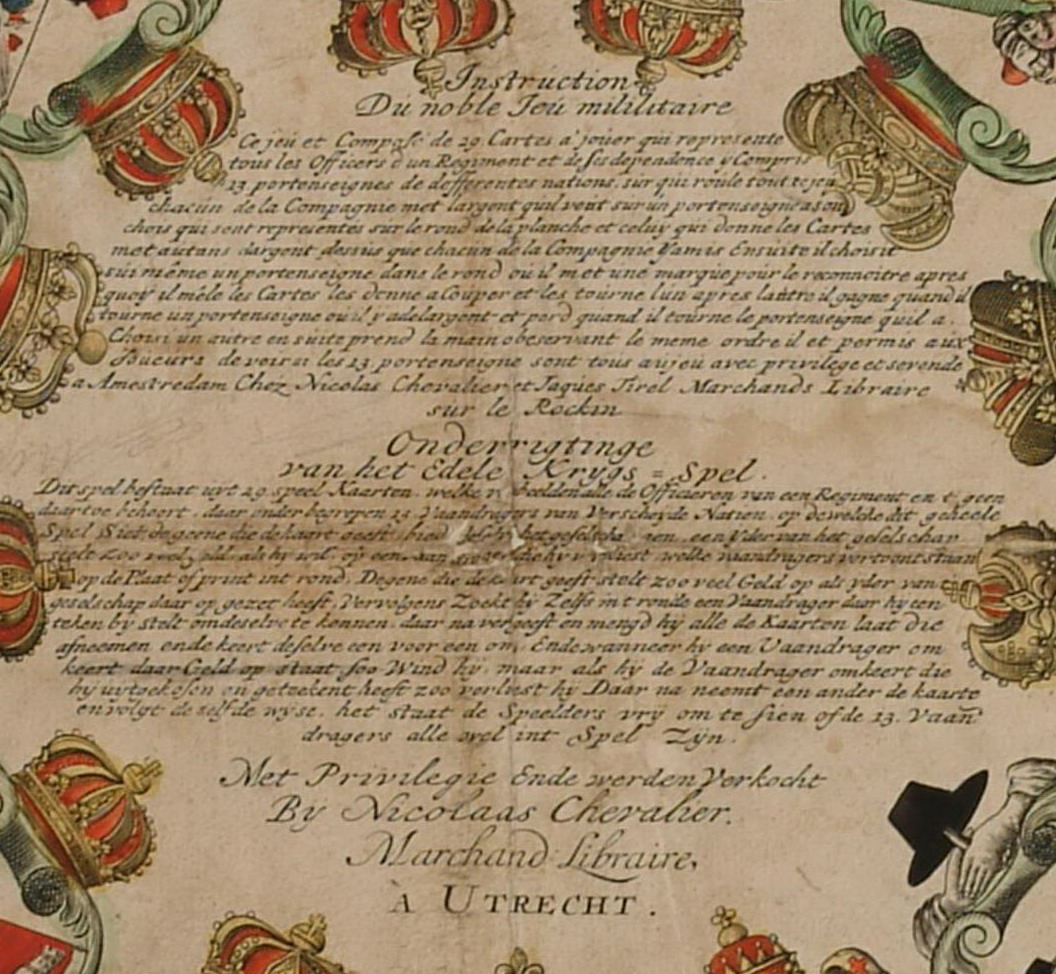 Instruction
Du noble Jeu mililitaire
Ce jeu et Compose de 29 Cartes a jouer qui represente
tous les Officers d'un Regiment et de ses dependence y Compris
13 portenseignes de defferentes nations, sur qui roule tout le jeu
chacun de la Compagnie met largent quil veut sur un portenseigne a son
chois qui sont representés sur le rond de la planche et celuy qui donne les Cartes
met autans dargent dessus que chacun de la Compagnie y a mis Ensuite il choisit
sui même un portenseigne dans le rond ou il met une marque pour le reconnoitre apres
quoy il mêle les Cartes les donne a Couper et les tourne l'un apres lautre il gagne quand il
tourne un portenseigne ou il y a de largent et perd quand il tourne le portenseigne quil a
Choisi un autre en suite prend la main observant le meme ordre il et permis aux
Joueurs de voir si les 13 portenseigne sont tous au jeu avec privilege et se vende
a Amestredam Chez Nicolas Chevalier et Jaques Tirel Marchands Libraire
sur le Rockin
Onderrigtinge
van het Edele Krygs = Spel.
Dit spel bestaat uyt 29 speel Kaarten, welke alle de Officieren van een Regiment en t geen
daartoe behoort, daar onder begrepen 13 Vaandragers van Verscheyde Natien, op dewelke dit geheele
Spel Siet, degeene die de kaart geeft, een yder van het geselschap
stelt zoo veel geld als hy wil op een welke vaandragers vertoont staan
op de Plaat of print int rond, Degene die de kaart geeft stelt zoo veel Geld op als yder van
geselschap daar op gezet heeft, Vervolgens Zoekt hy Zelfs int ronde een Vaandrager daar hy een
teken by stelt om deselve te kennen, daar na vergeeft en mengd hy alle de Kaarten laat die
afneemen ende keert deselve een voor een om, Ende wanneer hy een Vaandrager om
keert daar Geld op staat soo Wind hy, maar als hy de Vaandrager omkeert die
hy uytgekosen en geteekent heeft zoo verliest hy Daar na neemt een ander de kaarte
en volgt de zelfde wyse, het staat de Speelders vry om te sien of de 13. Vaan
dragers alle wel int Spel Zyn.
Met Privilegie Ende werden Verkocht
By Nicolaas Chevalier.
Marchand Libraire,
À UTRECHT.